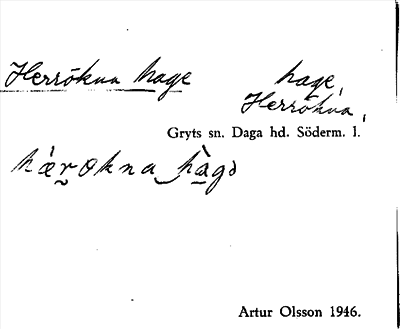 Herrökna hage
hage,
Herrökna,
Gryts sn. Daga hd. Söderm. l.
hærokna hàgə
Artur Olsson 1946.